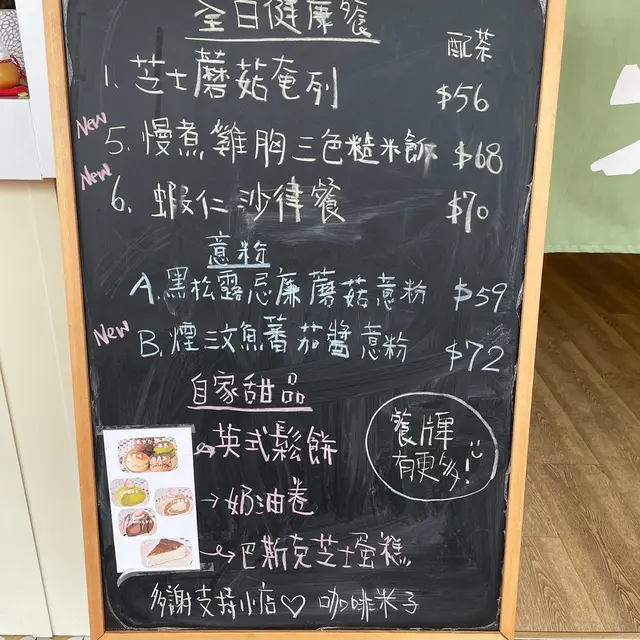 全日健康餐
配茶
1. 芝士蘑菇奄列 $56
New 5. 慢煮雞胸三色糙米飯 $68
New 6. 蝦仁沙律餐 $70
意粉
A. 黑松露忌廉蘑菇意粉 $59
New B. 煙三文魚蕃茄醬意粉 $72
自家甜品
英式鬆餅
餐牌
有更多!
奶油卷
巴斯克芝士蛋糕
多謝支持小店♡ 咖啡米子